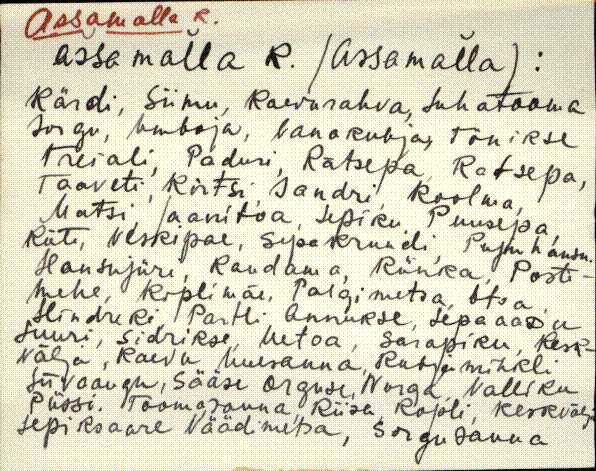 Assamalla K.
assamalla K. (Assamalla):
Kärdi, Siimu, Kaevurahva, Juhatooma
Sorgu, Umboja, Vanakubja, Tõnikse
Treiali, Paduri, Rätsepa, Ratsepa,
Taaveti, Kirtsi, Jandri, Koolma,
Matsi, Jaanitoa, Sepiku, Puusepa,
Rüti, Veskipae, Sepakruudi, Pujuhansu.
Hansujüri, Kandama, Rünka, Posti-
mehe, Koplimäe, Palgimetsa, Otsa,
Hindreki Partli Annukse,
Suuri, Sidrikse, Uetoa, Sarapiku, Kesk-
välja, Kaevu Uuesauna, Kubjamihkli
Süvaaugu, Sääse Orguse, Norga, Nalliku
Püssi. Toomasauna, Riisa, Kopli, Keskvälja
Sepiksaare Väädimetsa, Sorgusauna